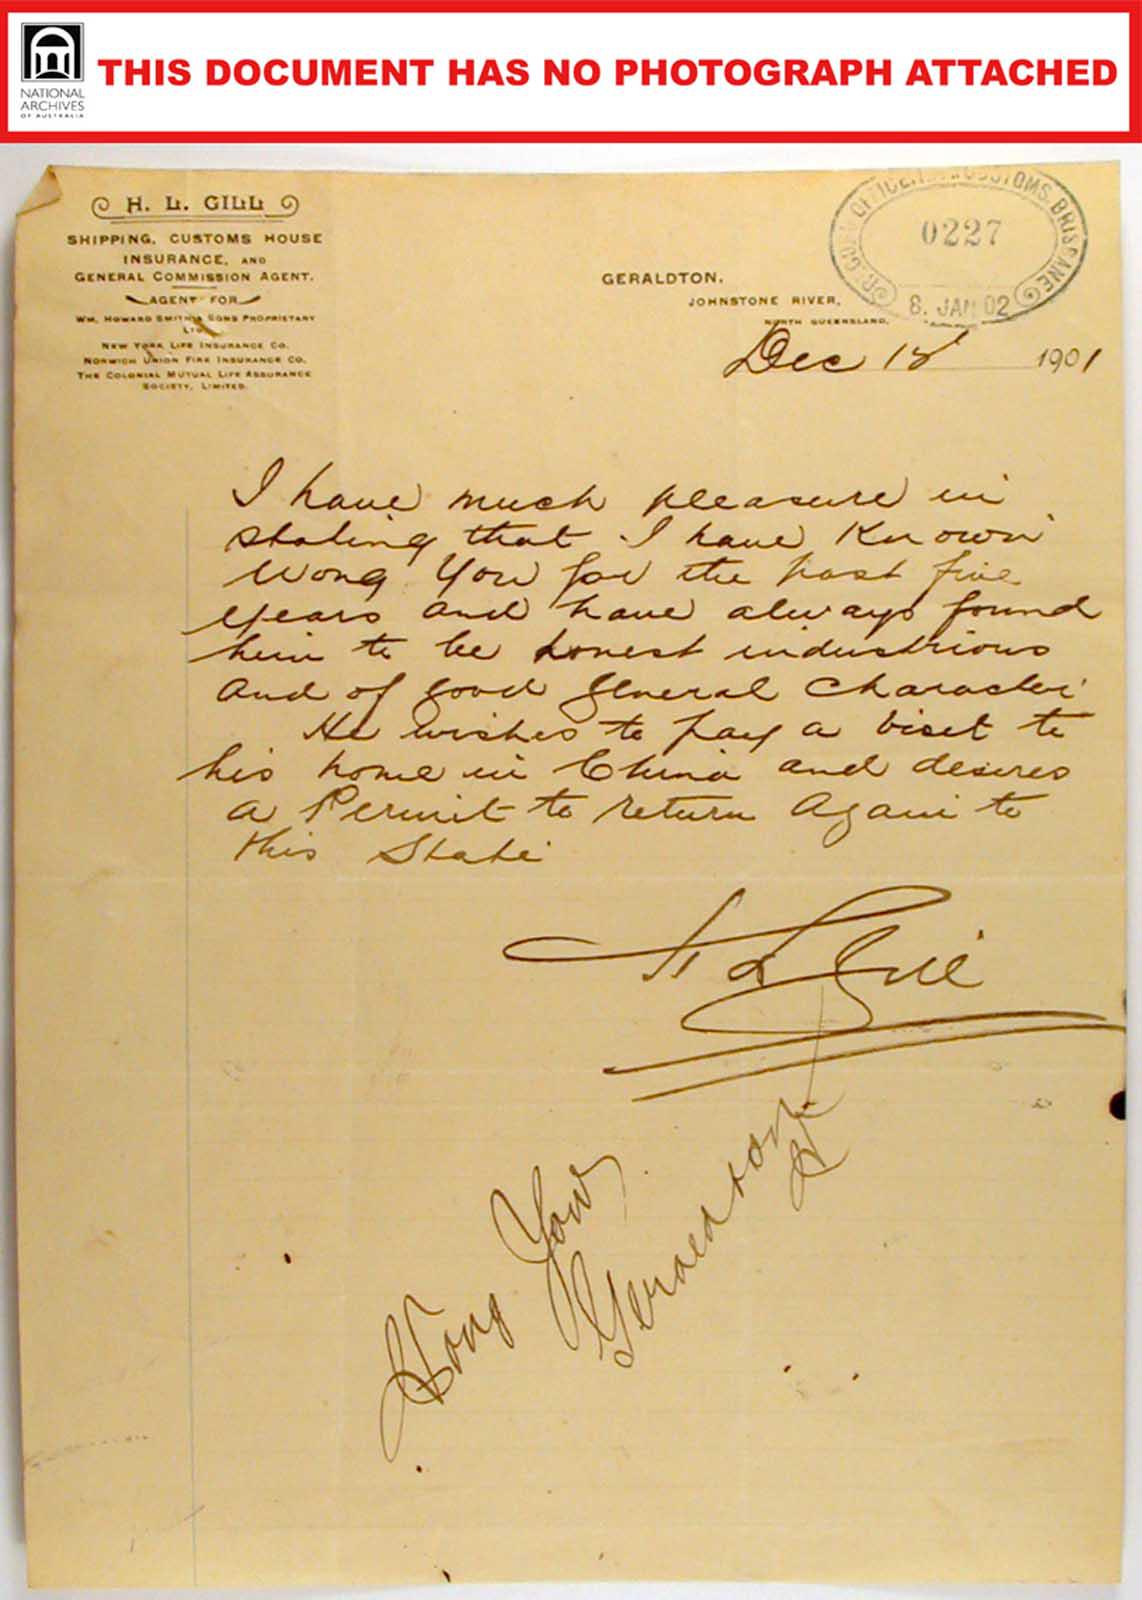 NATIONAL
ARCHIVES
OF AUSTRALIA
THIS DOCUMENT HAS NO PHOTOGRAPH ATTACHED
H. L. GILL
SHIPPING, CUSTOMS HOUSE
INSURANCE, AND
GENERAL COMMISSION AGENT.
AGENT FOR
WM. HOWARD SMITH & SONS PROPRIETARY
LTD.
NEW YORK LIFE INSURANCE CO.
NORWICH UNION FIRE INSURANCE CO.
THE COLONIAL MUTUAL LIFE ASSURANCE
SOCIETY, LIMITED.
CUSTOMS, BRISBANE
0227
8. JAN 02
GERALDTON,
JOHNSTONE RIVER,
NORTH QUEENSLAND,
Dec 18 1901
I have much pleasure in
stating that I have Known
Wong You for the past five
years and have always found
him to be honest industrious
and of good general character
He wishes to pay a visit to
his home in China and desires
a Permit to return again to
this State
H L Gill
Wong Yow
Geraldton